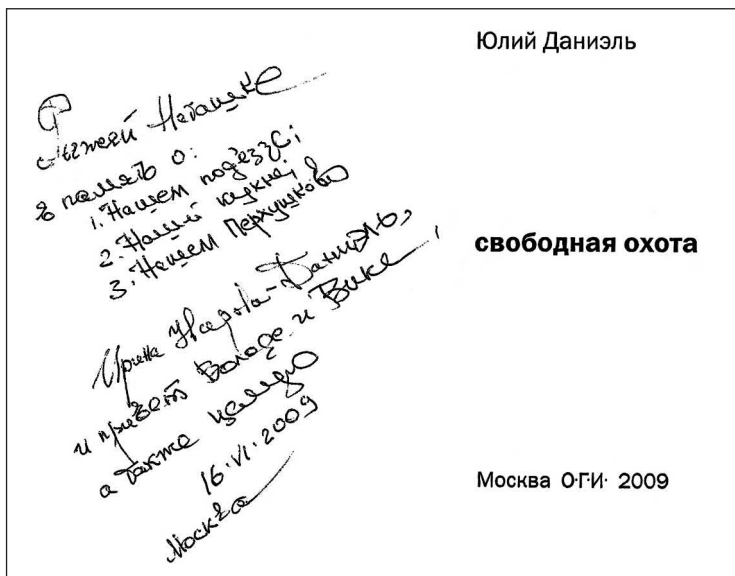 Рыжей Наташке
в память о:
1. Нашем подъезде;
2. Нашей кухне;
3. Нашем Перхушково
Ирина Уварова-Даниэль,
и привет Володе и Вике,
а также целую
16·VI·2009
Москва
Юлий Даниэль
свободная охота
Москва О·Г·И· 2009